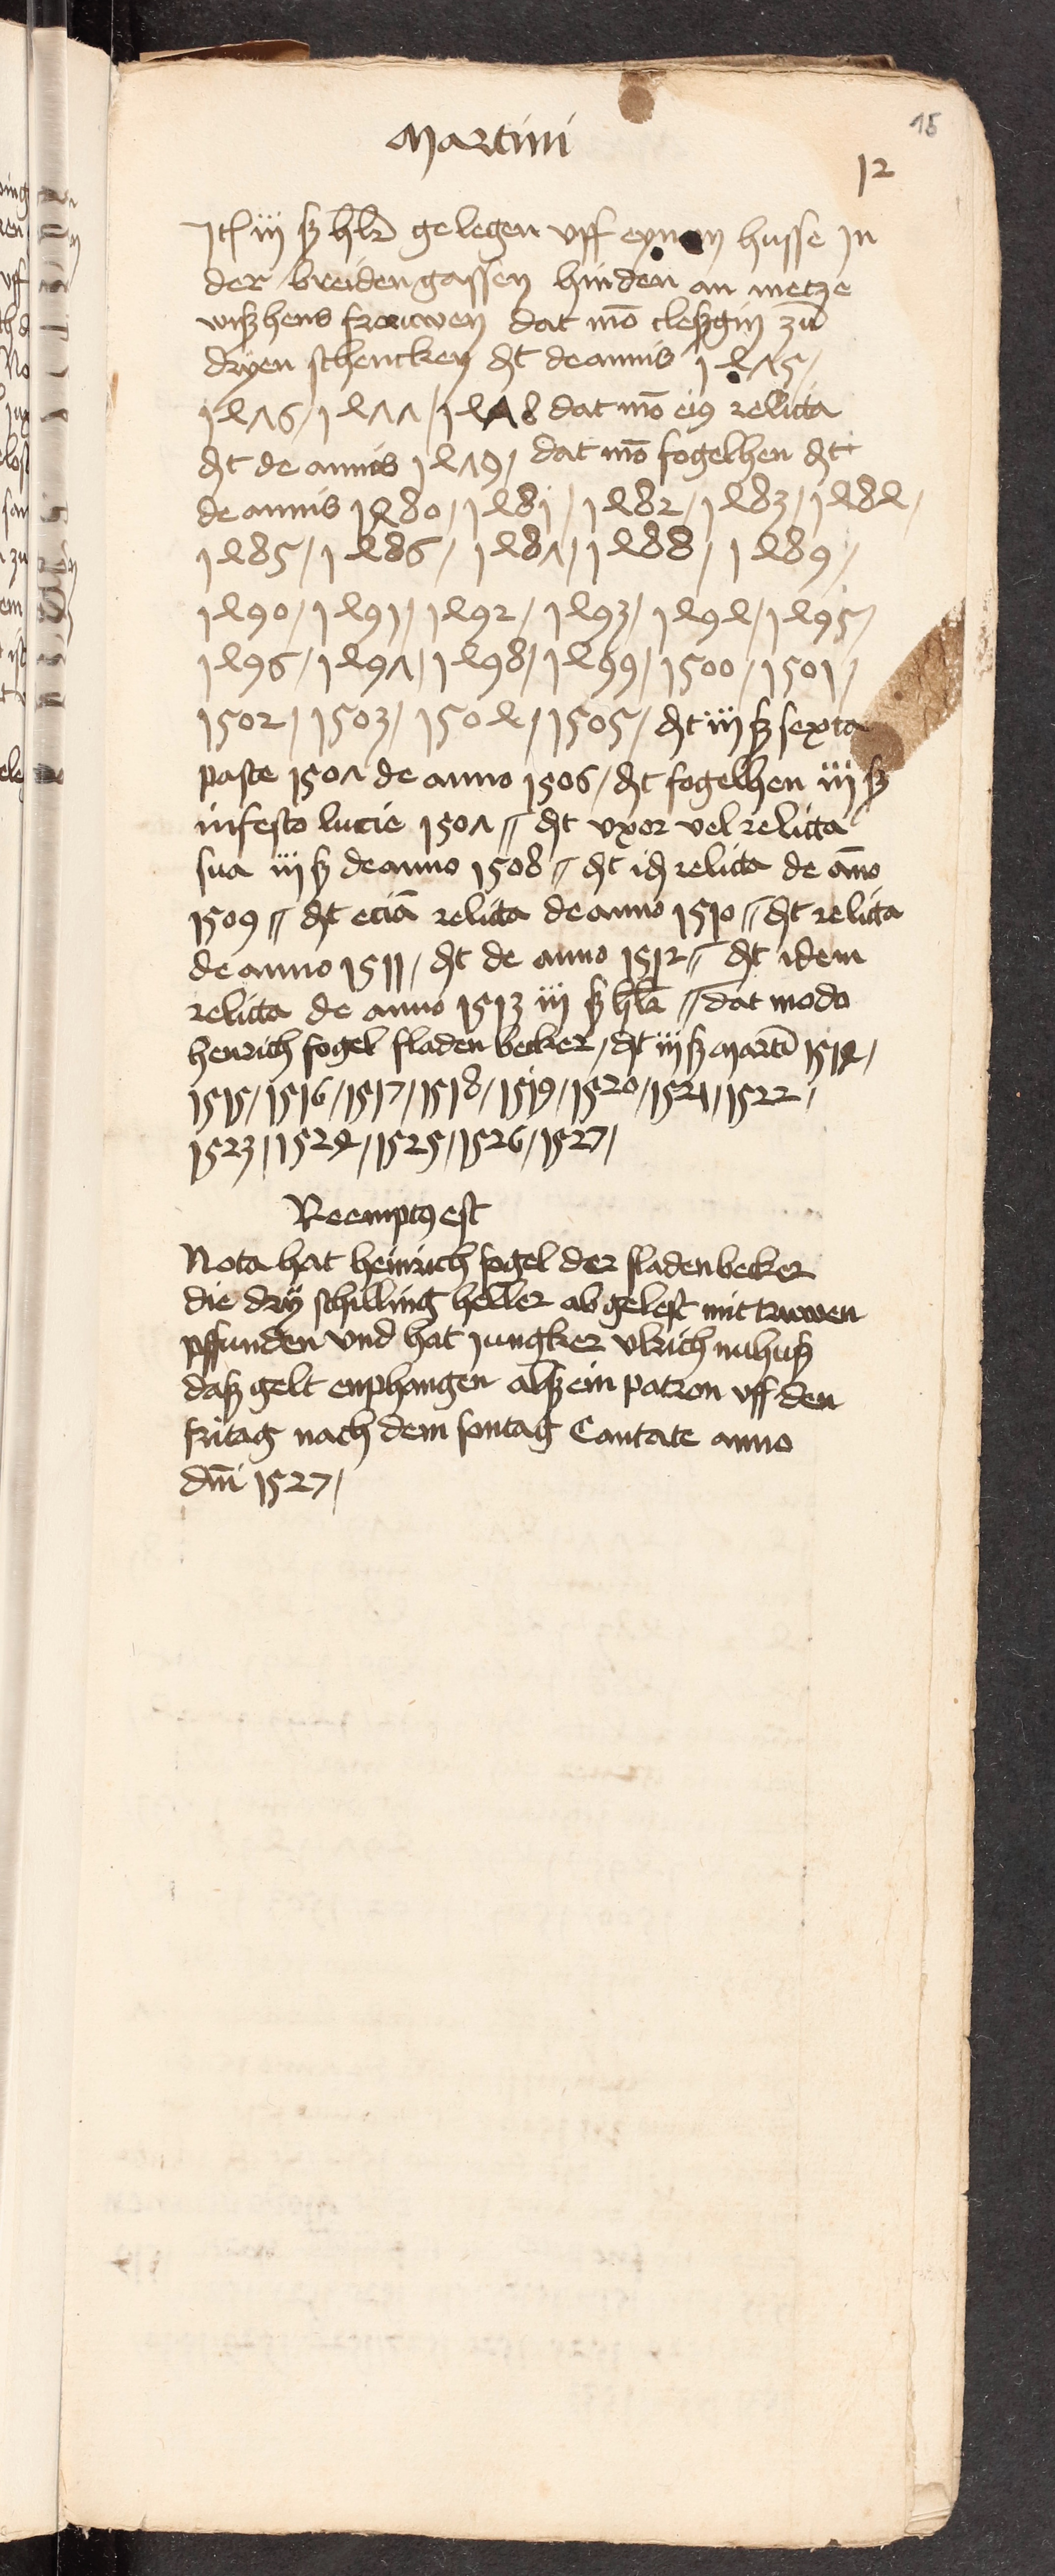 Martini
15
12
Jt iij ß hlr gelegen vff eynem husse jn
der breidengassen hinden an metze
wißhens frauwen dat mo cleßgin zu
dryen schencken dt de annis 1475 /
1476 / 1477 / 1478 dat mo ei9 relicta
dt de annis 1479 / dat mo fogelhen dt
de annis 1480 / 1481 / 1482 / 1483 / 1484 /
1485 / 1486 / 1487 / 1488 / 1489 /
1490 / 1491 / 1492 / 1493 / 1494 / 1495 /
1496 / 1497 / 1498 / 1499 / 1500 / 1501 /
1502 / 1503 / 1504 / 1505 / dt iij ß sexta
pasce 1507 de anno 1506 / dt fogelhen iij ß
in festo lucie 1507 // dt vxor vel relicta
sua iij ß de anno 1508 // dt id relicta de ano
1509 // dt ecia relicta de anno 1510 // dt relicta
de anno 1511 / dt de anno 1512 // dt idem
relicta de anno 1513 iij ß hlr // dat modo
henrich fogel fladenbecker / dt iij ß Marti 1514 /
1515 / 1516 / 1517 / 1518 / 1519 / 1520 / 1521 / 1522 /
1523 / 1524 / 1525 / 1526 / 1527 /
Reempt9 est
Nota hat heinrich fogel der fladenbecker
die dry schilling heller abgelest mit
pffunden vnd hat jungker vlrich nuhuß
daß gelt enphangen alß ein patron vff den
fritag nach dem sontag Cantate anno
dni 1527 /